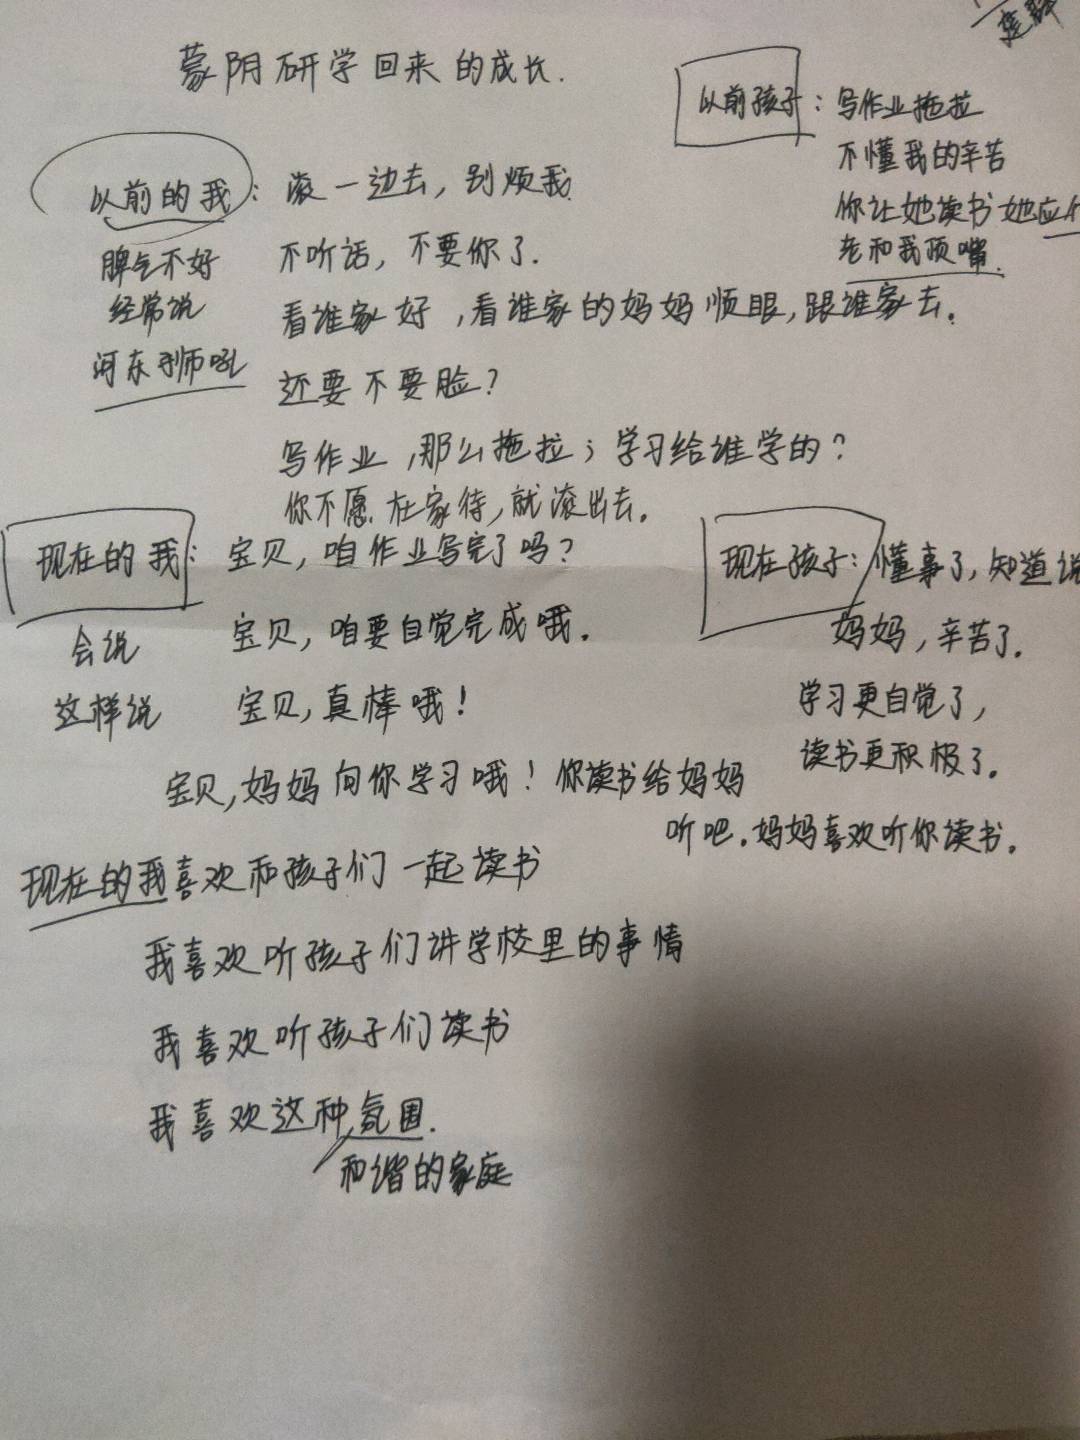 蒙阴研学回来的成长.
以前的我:
脾气不好
经常说
河东狮吼
滚一边去，别烦我
不听话，不要你了.
看谁家好，看谁家的妈妈顺眼，跟谁家去。
还要不要脸？
写作业，那么拖拉；学习给谁学的？
你不愿在家待，就滚出去。
以前孩子：写作业拖拉
不懂我的辛苦
你让她读书她应付
老和我顶嘴.
现在的我：
会说
这样说
宝贝，咱作业写完了吗？
宝贝，咱要自觉完成哦。
宝贝，真棒哦！
宝贝，妈妈向你学习哦！你读书给妈妈
听吧.妈妈喜欢听你读书。
现在孩子：懂事了，知道说
妈妈，辛苦了。
学习更自觉了，
读书更积极了。
现在的我喜欢和孩子们一起读书
我喜欢听孩子们讲学校里的事情
我喜欢听孩子们读书
我喜欢这种氛围.
和谐的家庭